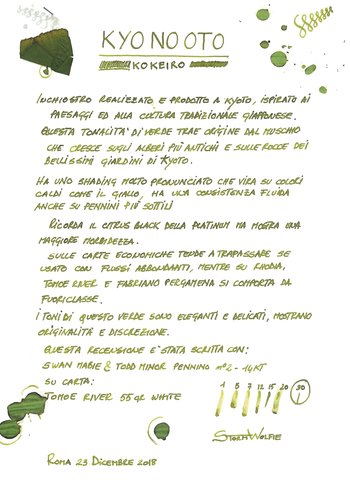 KYO NO OTO
KOKEIRO
INCHIOSTRO REALIZZATO E PRODOTTO A KYOTO, ISPIRATO AI
PAESAGGI ED ALLA CULTURA TRADIZIONALE GIAPPONESE.
QUESTA TONALITA' DI VERDE TRAE ORIGINE DAL MUSCHIO
CHE CRESCE SUGLI ALBERI PIÙ ANTICHI E SULLE ROCCE DEI
BELLISSIMI GIARDINI DI KYOTO.
HA UNO SHADING MOLTO PRONUNCIATO CHE VIRA SU COLORI
CALDI COME IL GIALLO, HA UNA CONSISTENZA FLUIDA
ANCHE SU PENNINI PIÙ SOTTILI
RICORDA IL CITRUS BLACK DELLA PLATINUM MA MOSTRA UNA
MAGGIORE MORBIDEZZA.
SULLE CARTE ECONOMICHE TENDE A TRAPASSARE SE
USATO CON FLUSSI ABBONDANTI, MENTRE SU RHODIA,
TOMOE RIVER E FABRIANO PERGAMENA SI COMPORTA DA
FUORICLASSE.
I TONI DI QUESTO VERDE SONO ELEGANTI E DELICATI, MOSTRANO
ORIGINALITÀ E DISCREZIONE.
QUESTA RECENSIONE E' STATA SCRITTA CON:
SWAN MABIE & TODD MINOR PENNINO Nº2 - 14KT
SU CARTA:
TOMOE RIVER 55 GR WHITE
1 5 7 12 15 20 30
STORMWOLFIE
ROMA 23 DICEMBRE 2018